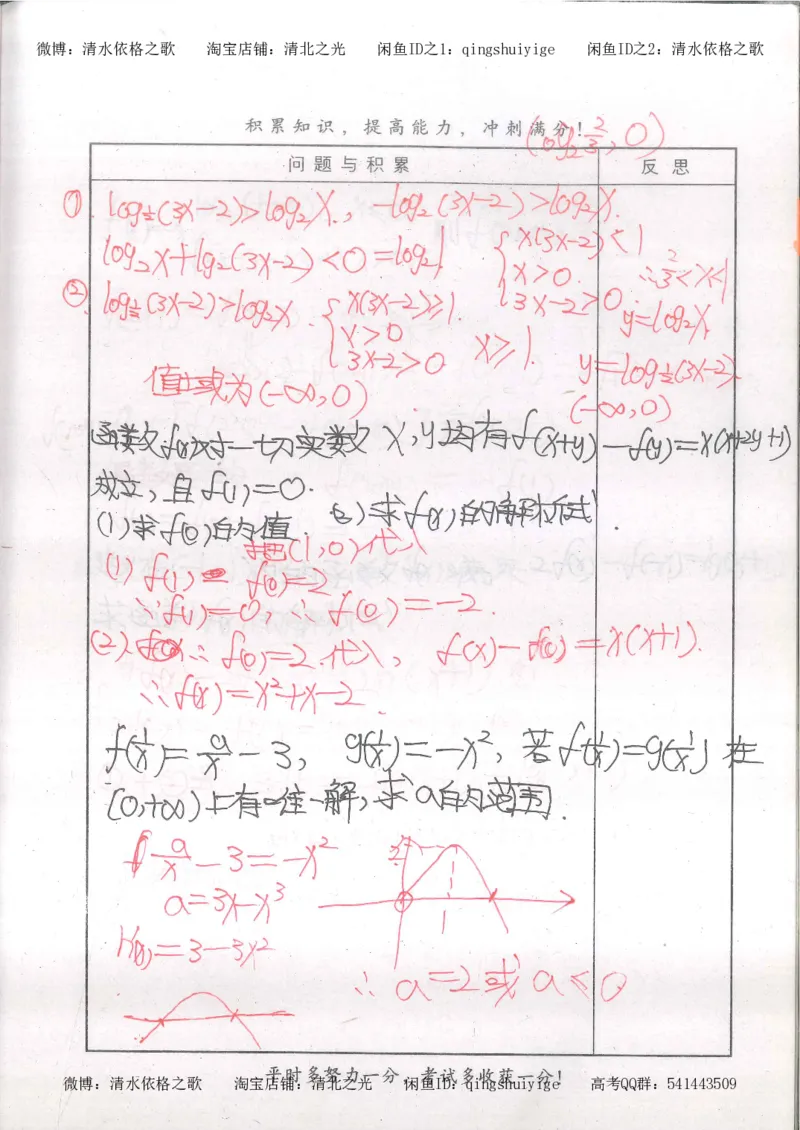 微博：清水依格之歌 淘宝店铺：清北之光 闲鱼ID之1：qingshuiyige 闲鱼ID之2：清水依格之歌
积累知识，提高能力，冲刺满分！
(log₂ 2/3, 0)
问题与积累 反思
①. log½(3x-2)>log₂x., -log₂(3x-2)>log₂x.
log₂x+lg₂(3x-2)<0=log₂1 { x(3x-2)<1
x>0.
3x-2>0. ∴2/3<x<1
② log½(3x-2)>log₂x. { x(3x-2)≥1.
x>0
3x-2>0 x≥1
y=log₂x,
y=log½(3x-2)
(-∞,0)
值域为(-∞,0)
函数f(x)对于一切实数x,y均有f(x+y)-f(y)=x(x+2y+1)
成立，且f(1)=0.
(1)求f(0)的值. (2)求f(x)的解析式.
把(1,0)代入
(1) f(1)- f(0)=2
∵f(1)=0, ∴f(0)=-2.
(2). ∴f(0)=2.代入, f(x)-f(0)=x(x+1).
∴f(x)=x²+x-2
f(1/x)=a/x-3, g(1/x)=-x², 若f(1/x)=g(1/x)在
(0,+∞)上有唯一解,求a的范围.
a/x-3=-x²
a=3x-x³
h'(x)=3-3x²
2
∴a=2或a≤0
平时多努力一分，考试多收获一分！
微博：清水依格之歌 淘宝店铺：清北之光 闲鱼ID之1：qingshuiyige 高考QQ群：541443509